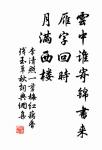 雲中誰寄錦書來
雁字回時
月滿西樓
李清照一剪梅紅藕香
殘玉簟秋詞典網喜